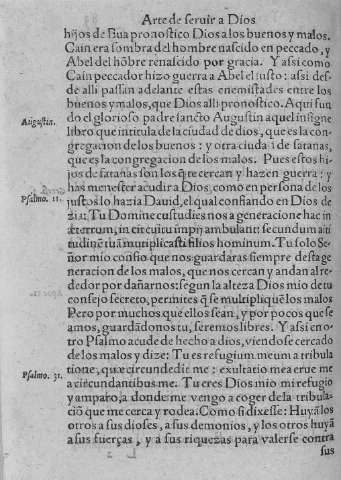 Arte de seruir a Dios
hijos de Eua pronostico Dios a los buenos y malos.
Cain era sombra del hombre nascido en peccado, y
Abel del hõbre renascido por gracia. Y assi como
Cain peccador hizo guerra a Abel el justo: assi desde
alli passan adelante estas enemistades entre los
buenos y malos, que Dios alli pronostico. Aqui fundo
el glorioso padre sancto Augustin aquel insigne
Augustin.
libro que intitula de la ciudad de dios, que es la congregacion
de los buenos: y otra ciudad de satanas,
que es la congregacion de los malos. Pues estos hijos
de satanas son los q̃ te cercan y hazen guerra: y
has menester acudir a Dios, como en persona de los
Psalmo. 11.
justos lo hazia Dauid, el qual confiando en Dios dezia:
Tu Domine custudies nos a generatione hac in
æternum, in circuitu impij ambulant: secundum altitudinẽ
tuã multiplicasti filios hominum. Tu solo Señor
mio confio que nos guardaras siempre desta generacion
de los malos, que nos cercan y andan al rededor
por dañarnos: segun la alteza Dios mio de tu
consejo secreto, permites q̃ se multipliquẽ los malos
Pero por muchos que ellos seãn, y por pocos que seamos,
guardãdonos tu, seremos libres. Y assi en otro
Psalmo acude de hecho a dios, viendose cercado
de los malos y dize: Tu es refugium meum a tribulatione,
Psalmo. 31.
quæ circundedit me: exultatio mea erue me
a circundantibus me. Tu eres Dios mio mi refugio
y amparo, a donde me vengo a coger desta tribulaciõ
que me cerca y rodea. Como si dixesse: Huyã los
otros a sus dioses, a sus demonios, y los otros huyã
a sus fuerças, y a sus riquezas para valerse contra
sus